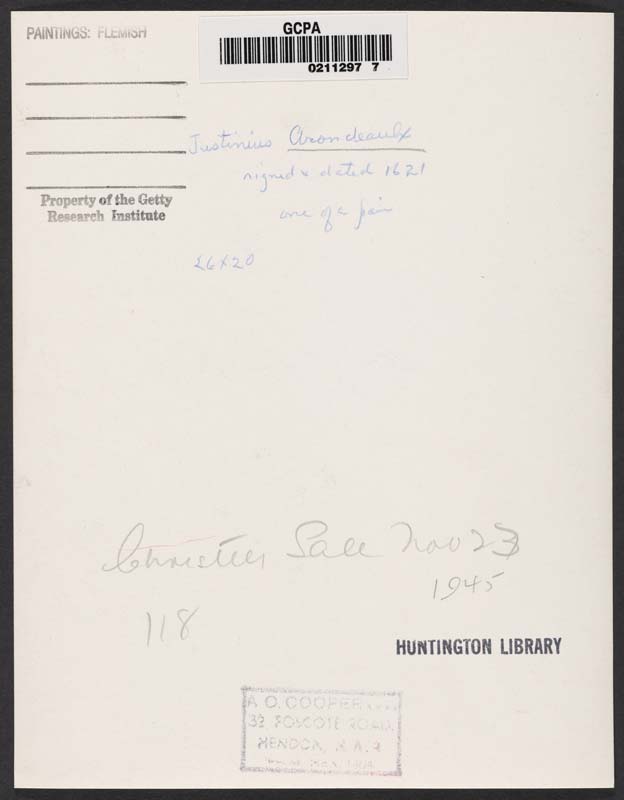 PAINTINGS: FLEMISH
GCPA
0211297 7
Property of the Getty
Research Institute
Justinius Arondeaulx
signed & dated 1621
one of a pair
26x20
Christies Sale Nov 23
1945
118
HUNTINGTON LIBRARY
A. O. COOPER
32, FOSCOTE ROAD,
HENDON, N.W.4